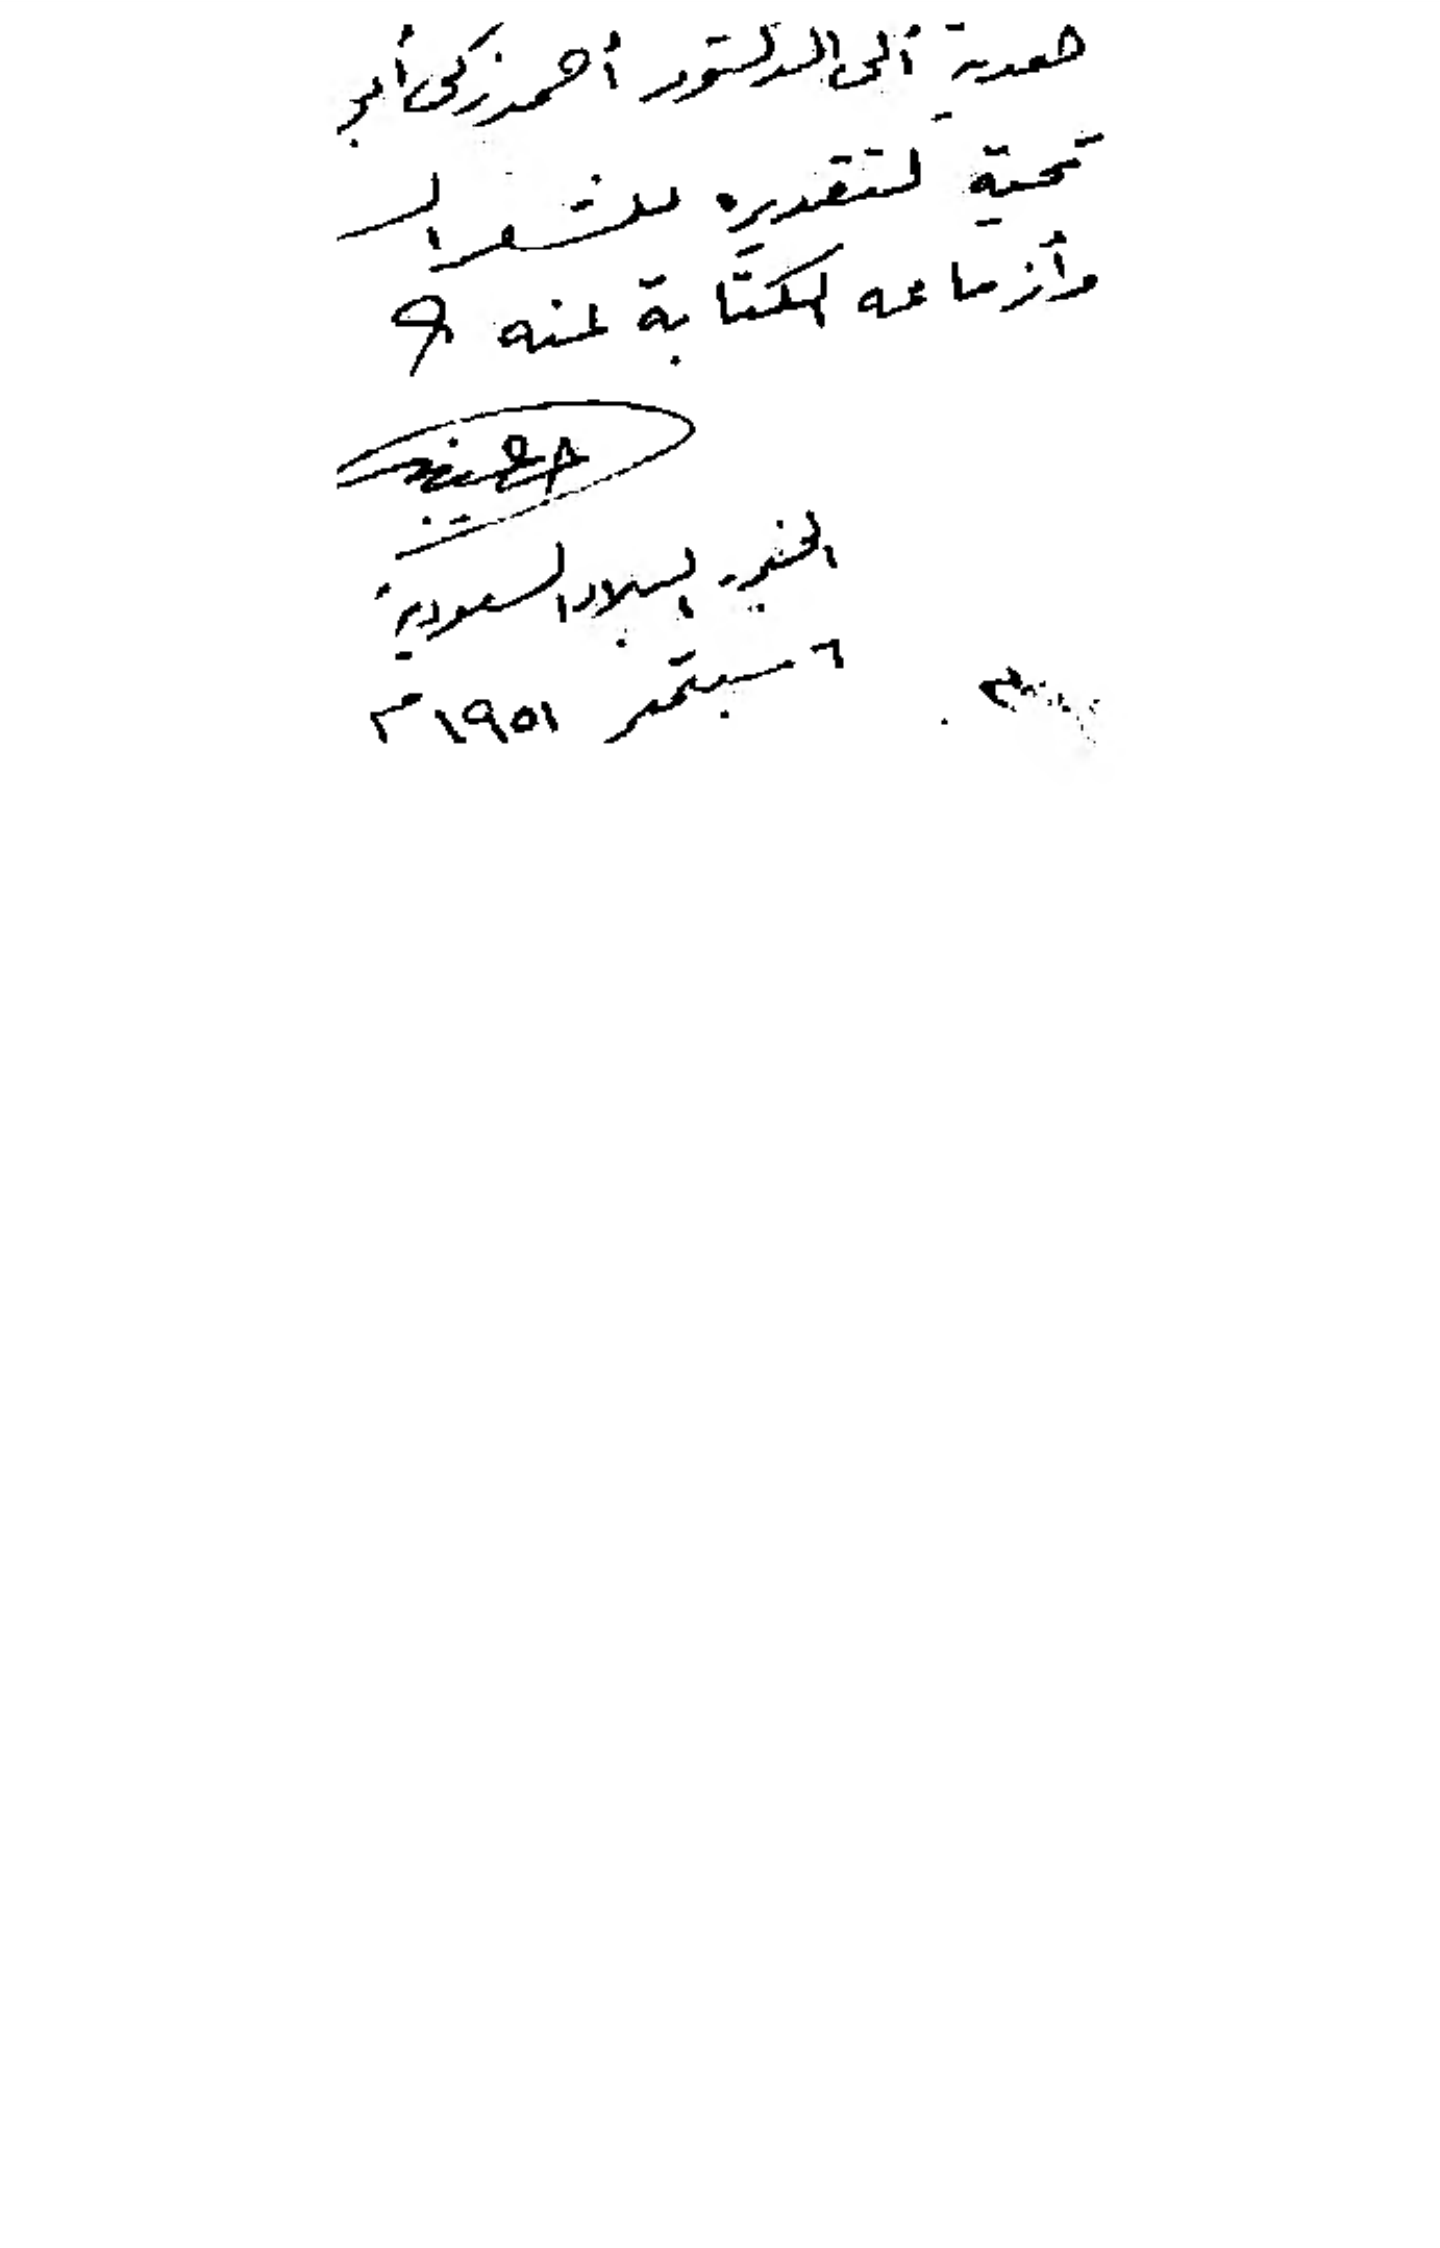 هدية ألى الدكتور أحمد زكى أبى
تحية لتقديره للشعر ال
وأزماعه الكتابة عنه
الخبر البلاد السعودية
٦ سبتمبر ١٩٥١ م